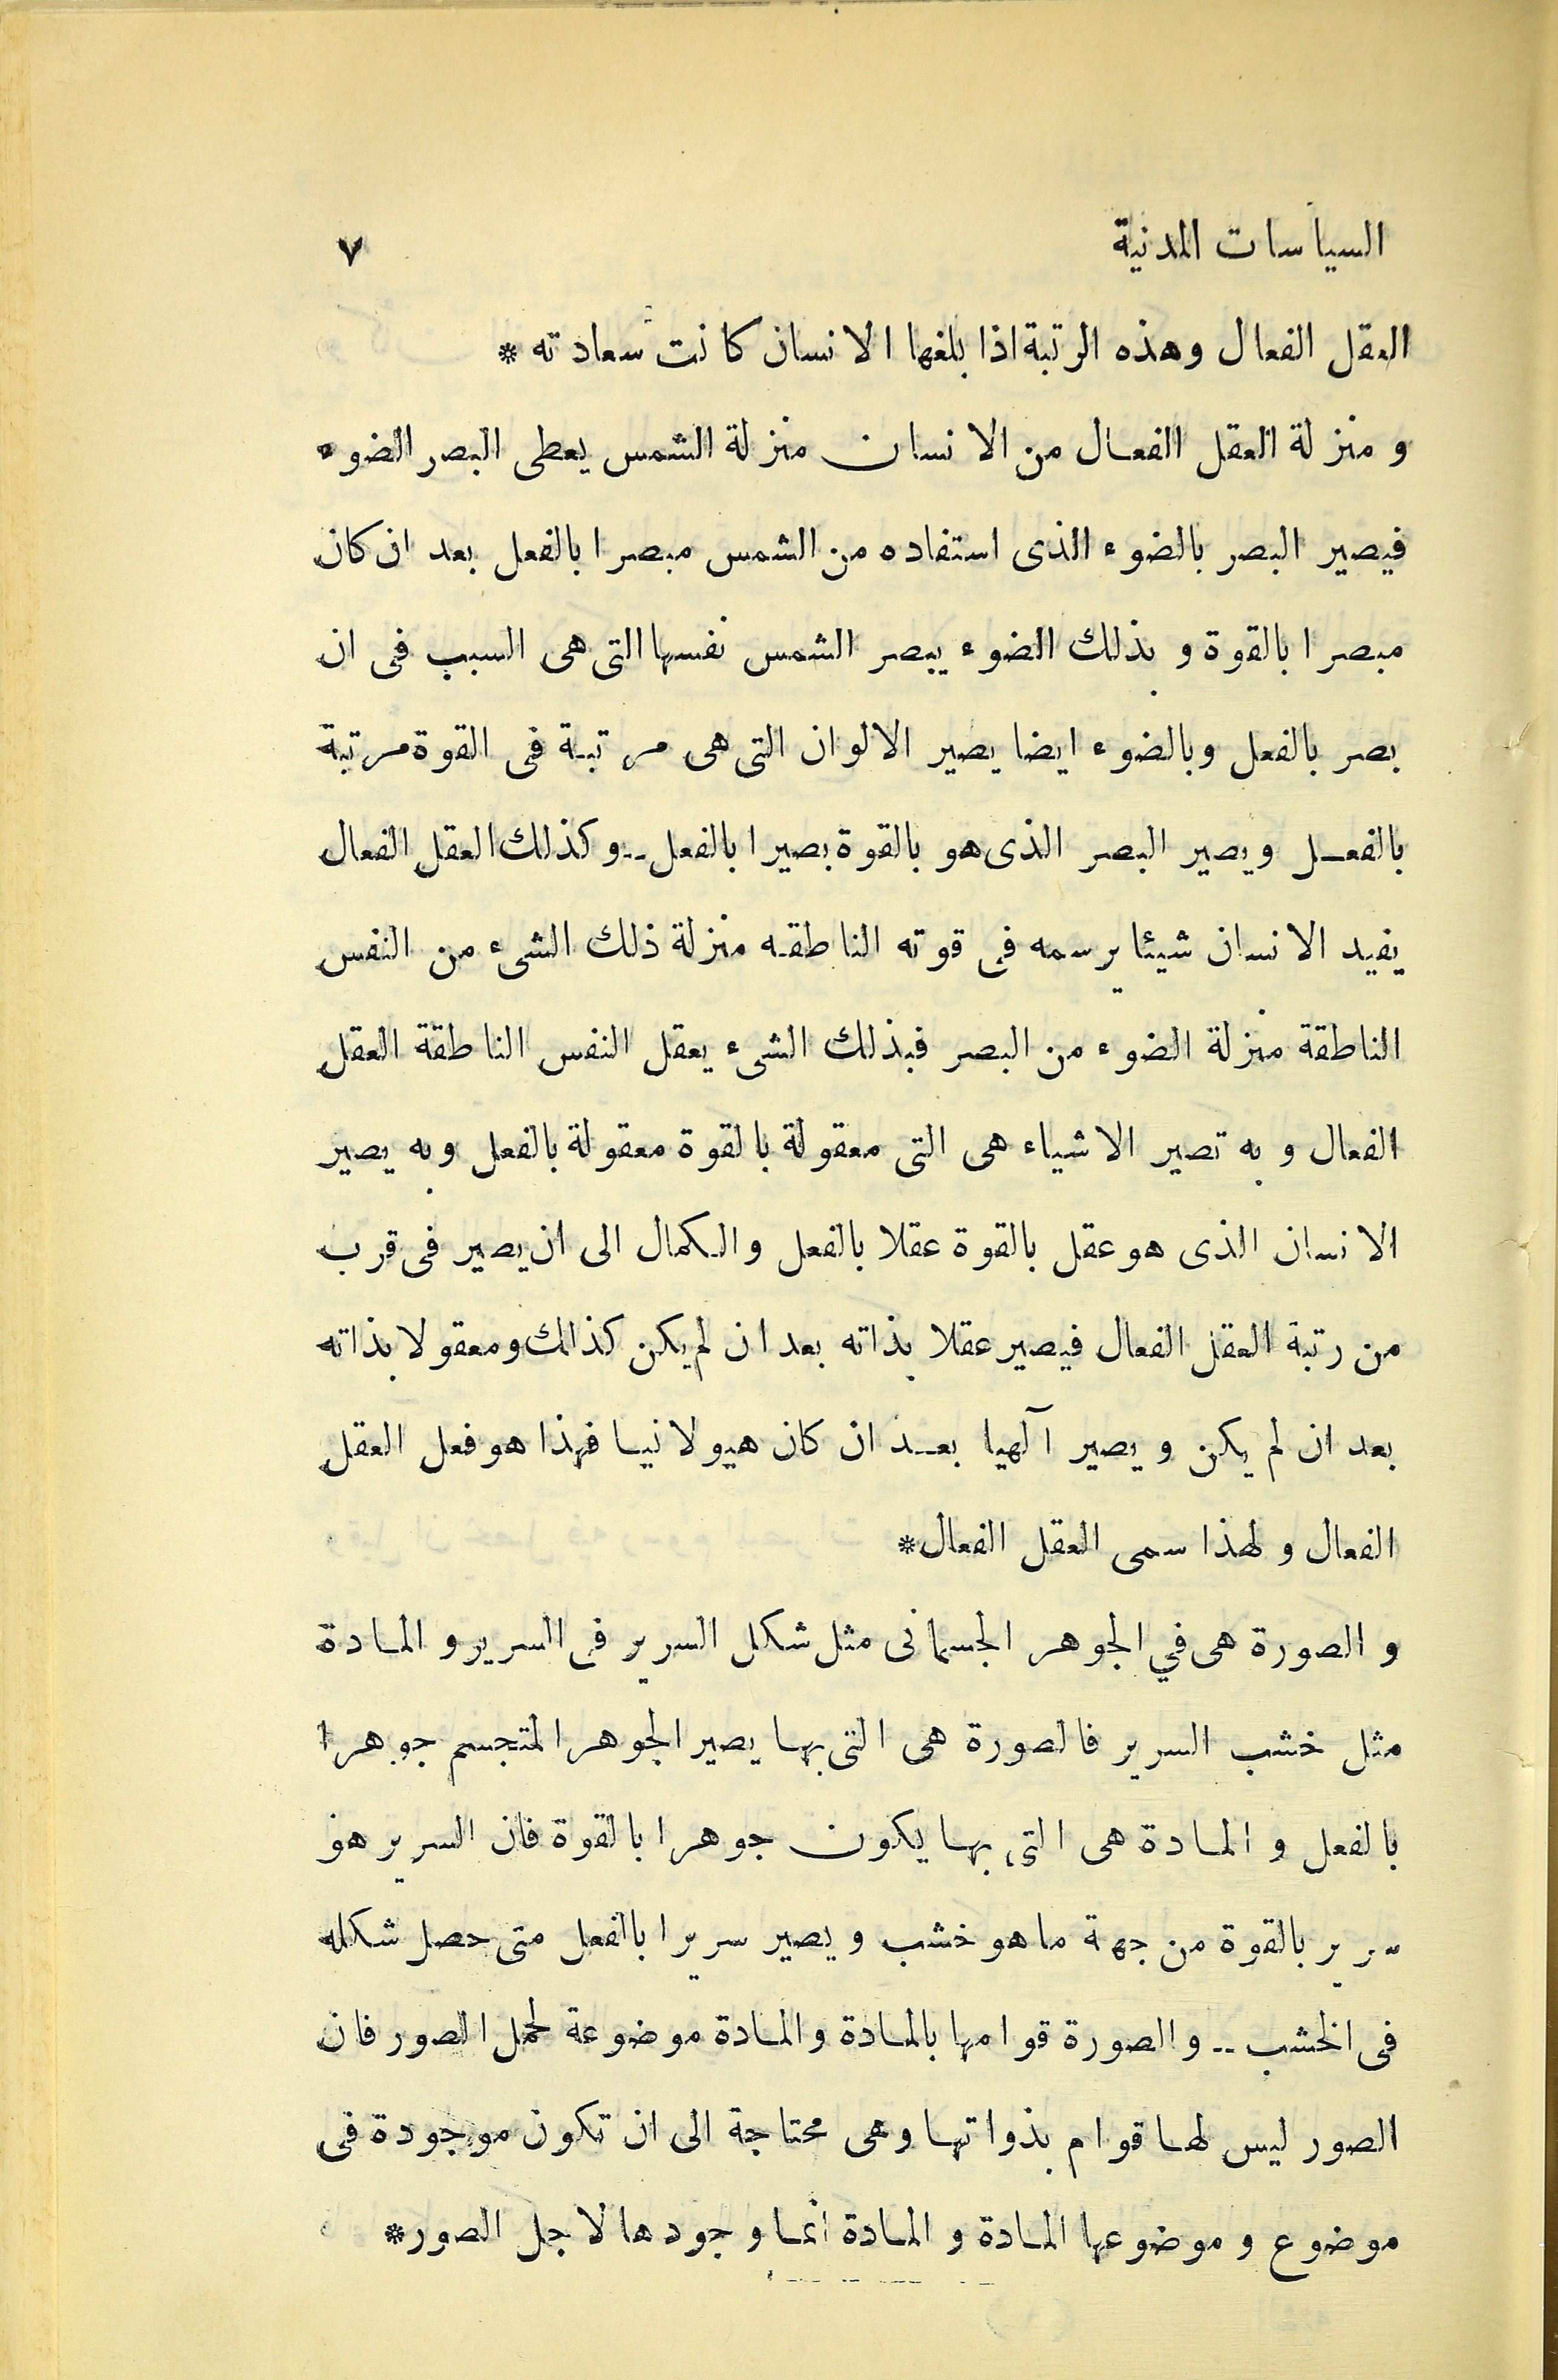 السياسات المدنية ٧
العقل الفعال وهذه الرتبة اذا بلغها الانسان كانت سعادته *
و منزلة العقل الفعال من الانسان منزلة الشمس يعطى البصر الضوء
فيصير البصر بالضوء الذى استفاده من الشمس مبصرا بالفعل بعد ان كان
مبصرا بالقوة و بذلك الضوء يبصر الشمس نفسها التى هى السبب فى ان
بصر بالفعل وبالضوء ايضا يصير الالوان التى هى مرتبة فى القوة مرتبة
بالفعل ويصير البصر الذى هو بالقوة بصيرا بالفعل -- وكذلك العقل الفعال
يفيد الانسان شيئا يرسمه فى قوته الناطقه منزلة ذلك الشىء من النفس
الناطقة منزلة الضوء من البصر فبذلك الشىء يعقل النفس الناطقة العقل
الفعال و به تصير الاشياء هى التى معقولة بالقوة معقولة بالفعل وبه يصير
الانسان الذى هو عقل بالقوة عقلا بالفعل والكمال الى ان يصير فى قرب
من رتبة العقل الفعال فيصير عقلا بذاته بعد ان لم يكن كذالك ومعقولا بذاته
بعد ان لم يكن ويصير آلهيا بعد ان كان هيولانيا فهذا هو فعل العقل
الفعال و لهذا سمى العقل الفعال *
و الصورة هى في الجوهر الجسمانى مثل شكل السرير فى السرير و المادة
مثل خشب السرير فالصورة هى التى بها يصير الجوهر المتجسم جوهرا
بالفعل و المادة هى التى بها يكون جوهرا بالقوة فان السرير هو
سرير بالقوة من جهة ما هو خشب ويصير سريرا بالفعل متى حصل شكله
فى الخشب -- والصورة قوامها بالمادة والمادة موضوعة لحمل الصور فان
الصور ليس لها قوام بذواتها وهى محتاجة الى ان تكون موجودة فى
موضوع و موضوعها المادة و المادة انما وجودها لاجل الصور *